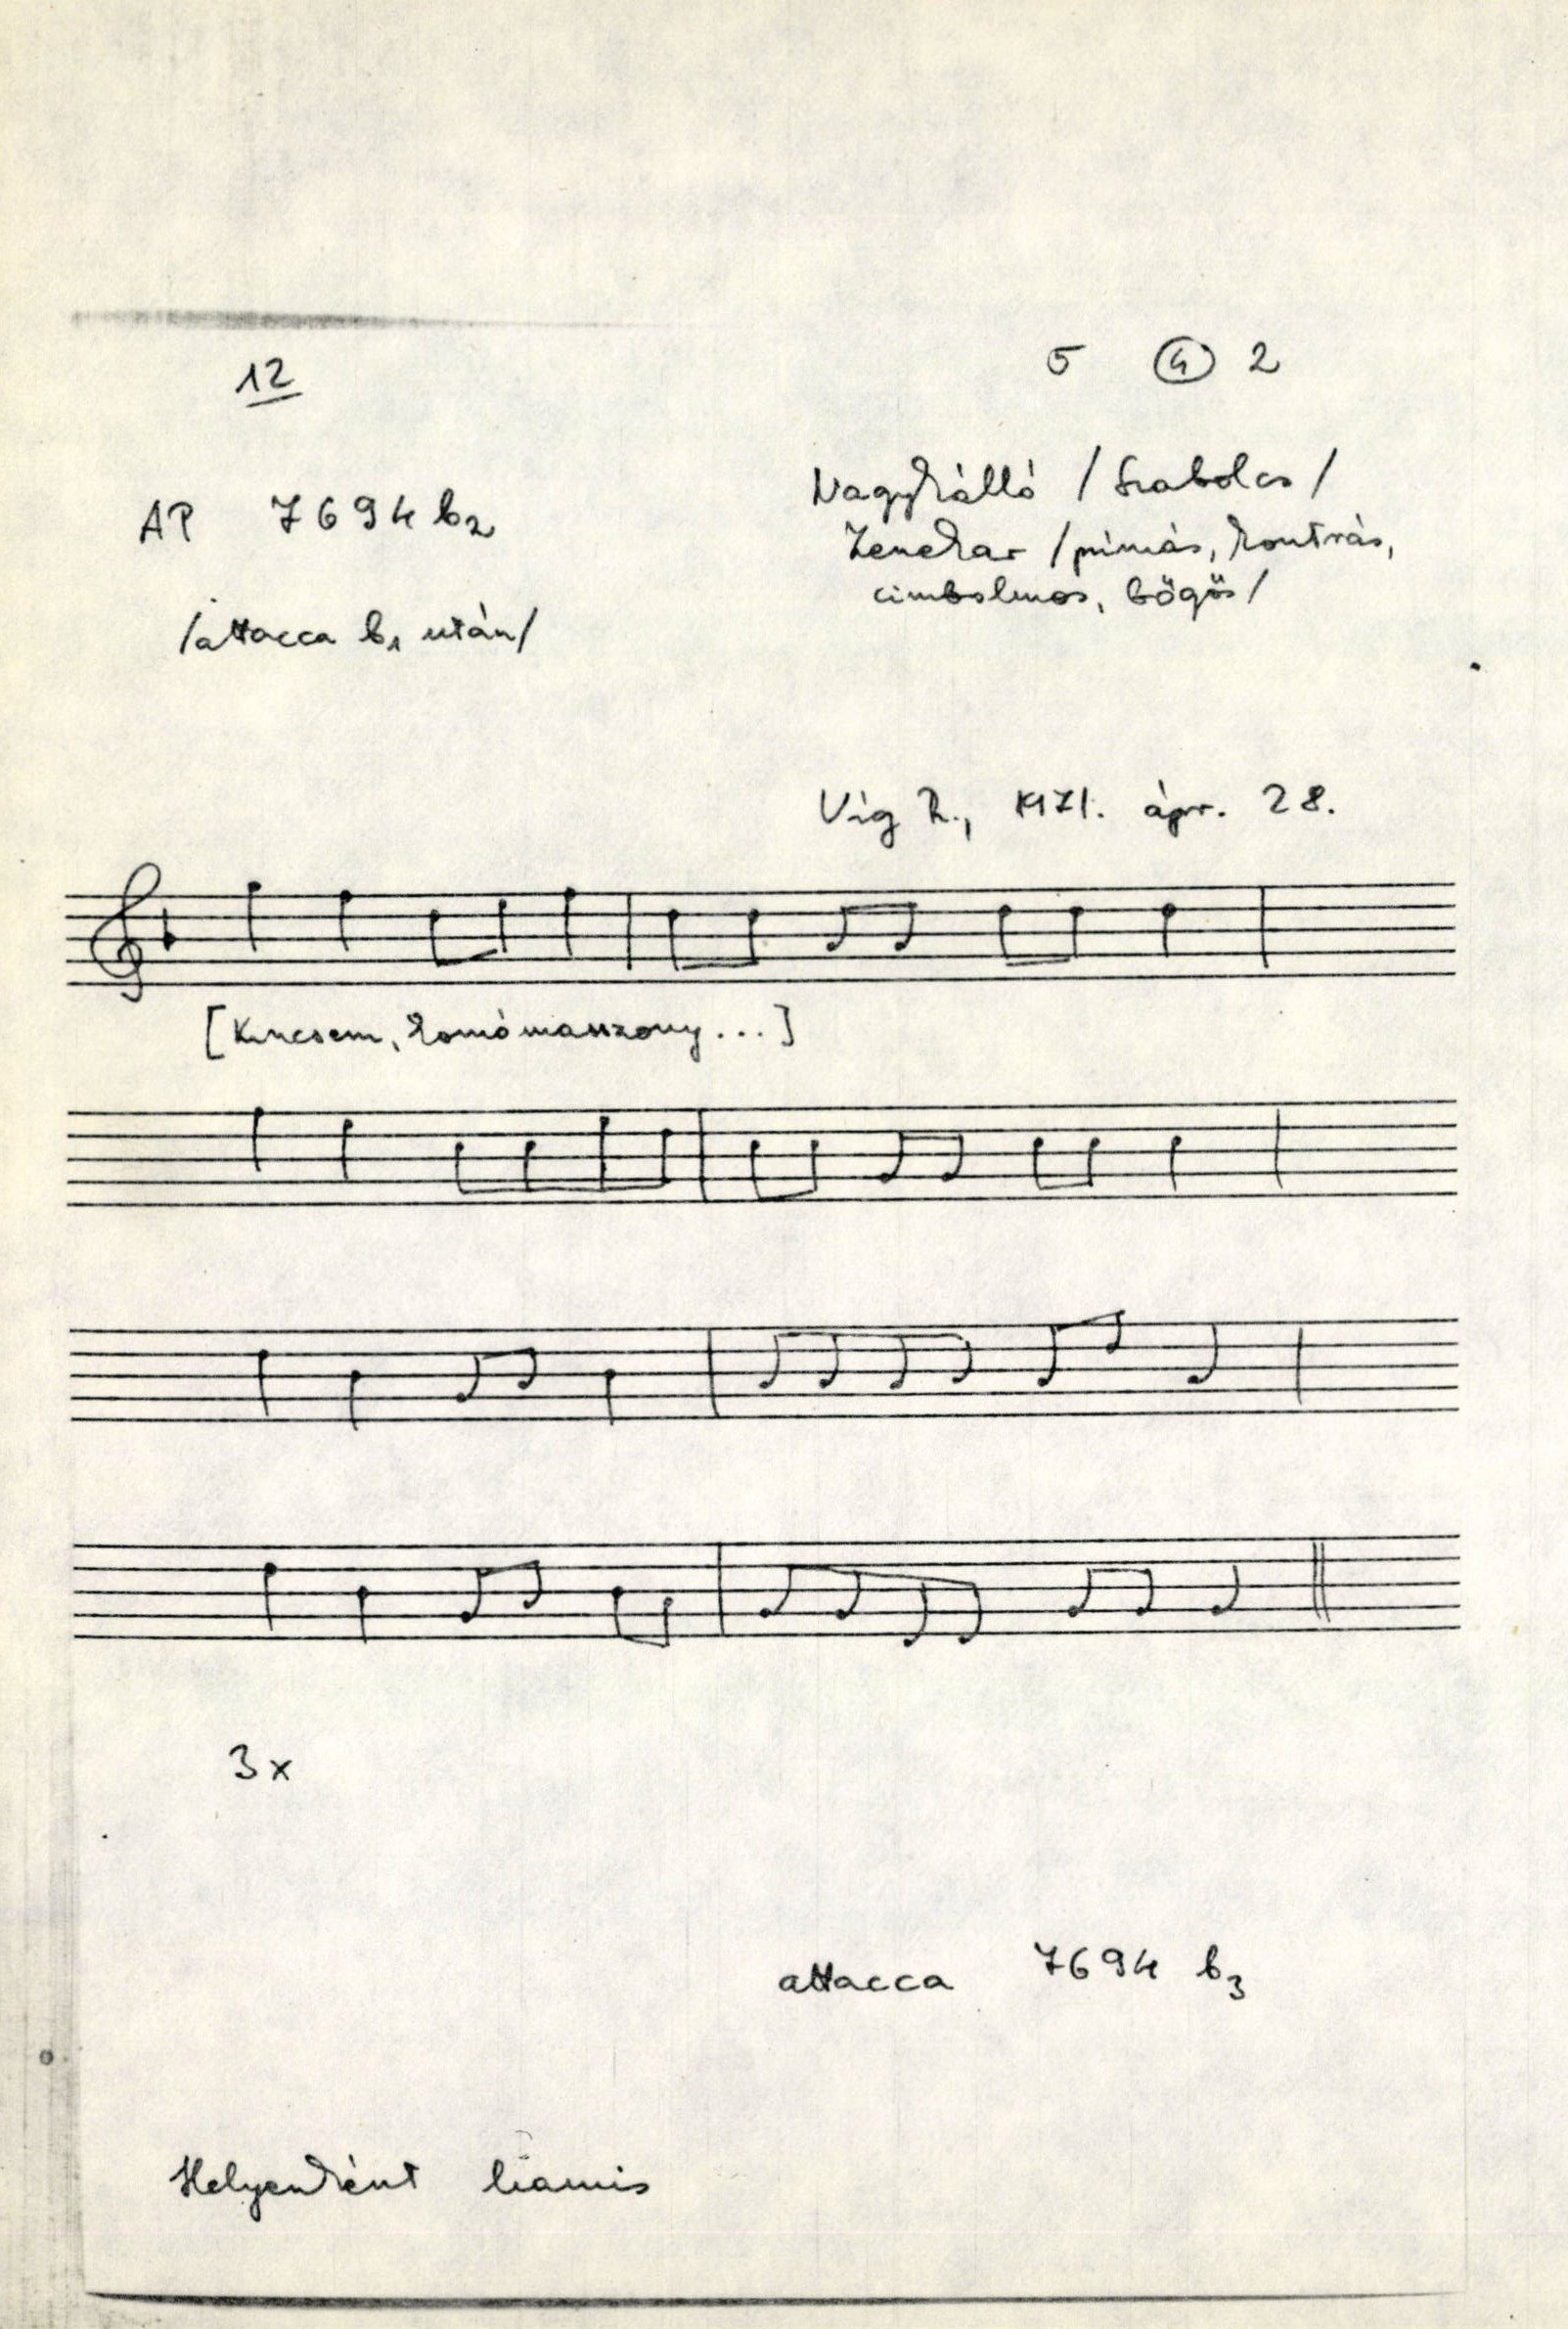 12
5 4 2
AP 7694 b2
Nagykálló /Szabolcs/
Zenekar /prímás, kontrás,
cimbalmos, bőgős/
/attacca b1 után/
Víg R., 1971. ápr. 28.
[Kincsem, komámasszony...]
3x
attacca 7694 b3
Helyenként hamis